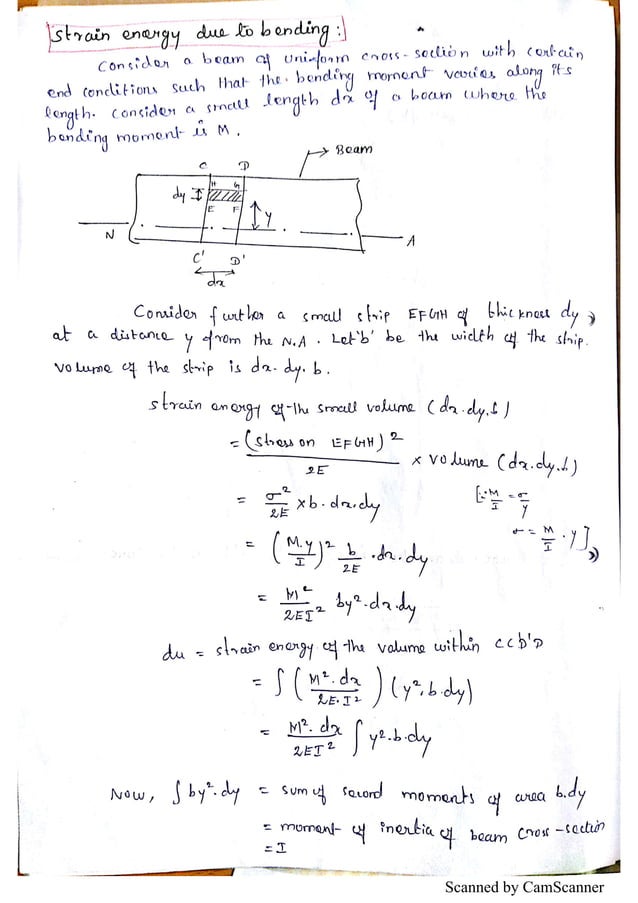 Strain energy due to bending:
Consider a beam of uniform cross-section with certain
end conditions such that the bending moment varies along its
length. Consider a small length dx of a beam where the
bending moment is M.
Beam
C D
H G
dy
E F
y
N
A
C' D'
dx
Consider further a small strip EFGH of thickness dy,
at a distance y from the N.A. Let 'b' be the width of the strip.
Volume of the strip is dx. dy. b.
Strain energy of the small volume (dx. dy. b)
= (stress on EFGH)² / 2E × volume (dx. dy. b)
= σ²/2E × b. dx. dy [∵ M/I = σ/y
= (M.y/I)² b/2E . dx. dy σ = M/I . y]
= M²/2EI² by². dx. dy
du = strain energy of the volume within CC'D'D
= ∫ (M². dx / 2E. I²) (y². b. dy)
= M². dx / 2EI² ∫ y². b. dy
Now, ∫ by². dy = sum of second moments of area b. dy
= moment of inertia of beam cross-section
= I
Scanned by CamScanner